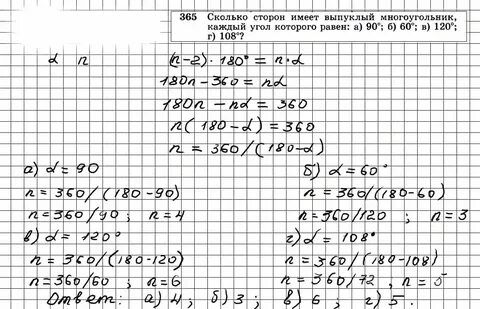 365 Сколько сторон имеет выпуклый многоугольник,
каждый угол которого равен: а) 90°; б) 60°; в) 120°;
г) 108°?
α n (n-2)·180° = n·α
180n-360 = nα
180n - nα = 360
n(180-α) = 360
n = 360/(180-α)
а) α = 90 б) α = 60°
n = 360/(180-90) n = 360/(180-60)
n = 360/90 ; n = 4 n = 360/120 ; n = 3
в) α = 120° г) α = 108°
n = 360/(180-120) n = 360/(180-108)
n = 360/60 ; n = 6 n = 360/72 , n = 5
Ответ: а) 4 ; б) 3 ; в) 6 ; г) 5 .